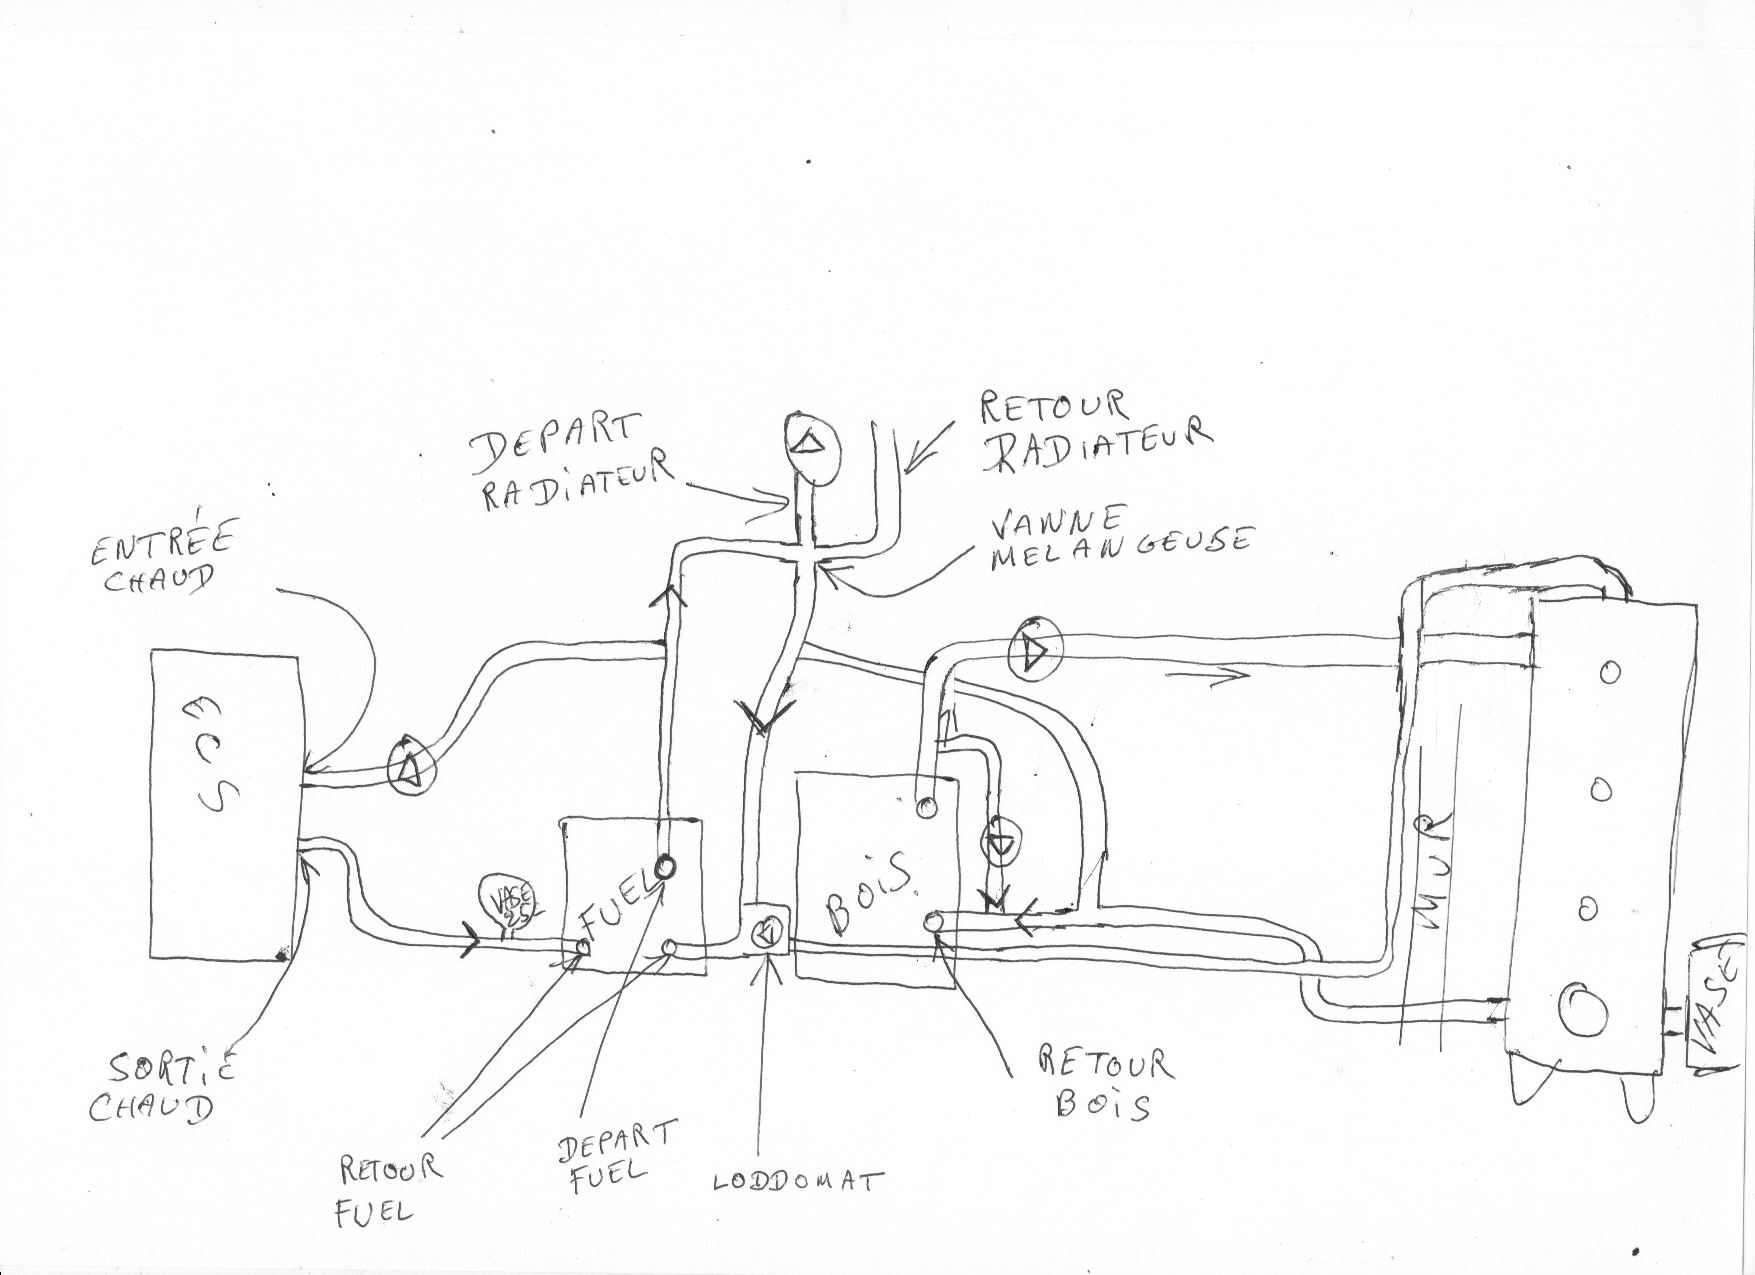 DEPART
RADiATEUR
RETOUR
RADiATEUR
VANNE
MELANGEUSE
ENTRÉE
CHAUD
ECS
VASE
25
FUEL
BOiS
MUR
VASE
SORTiE
CHAUD
RETOUR
FUEL
DEPART
FUEL
LODDOMAT
RETOUR
BOiS